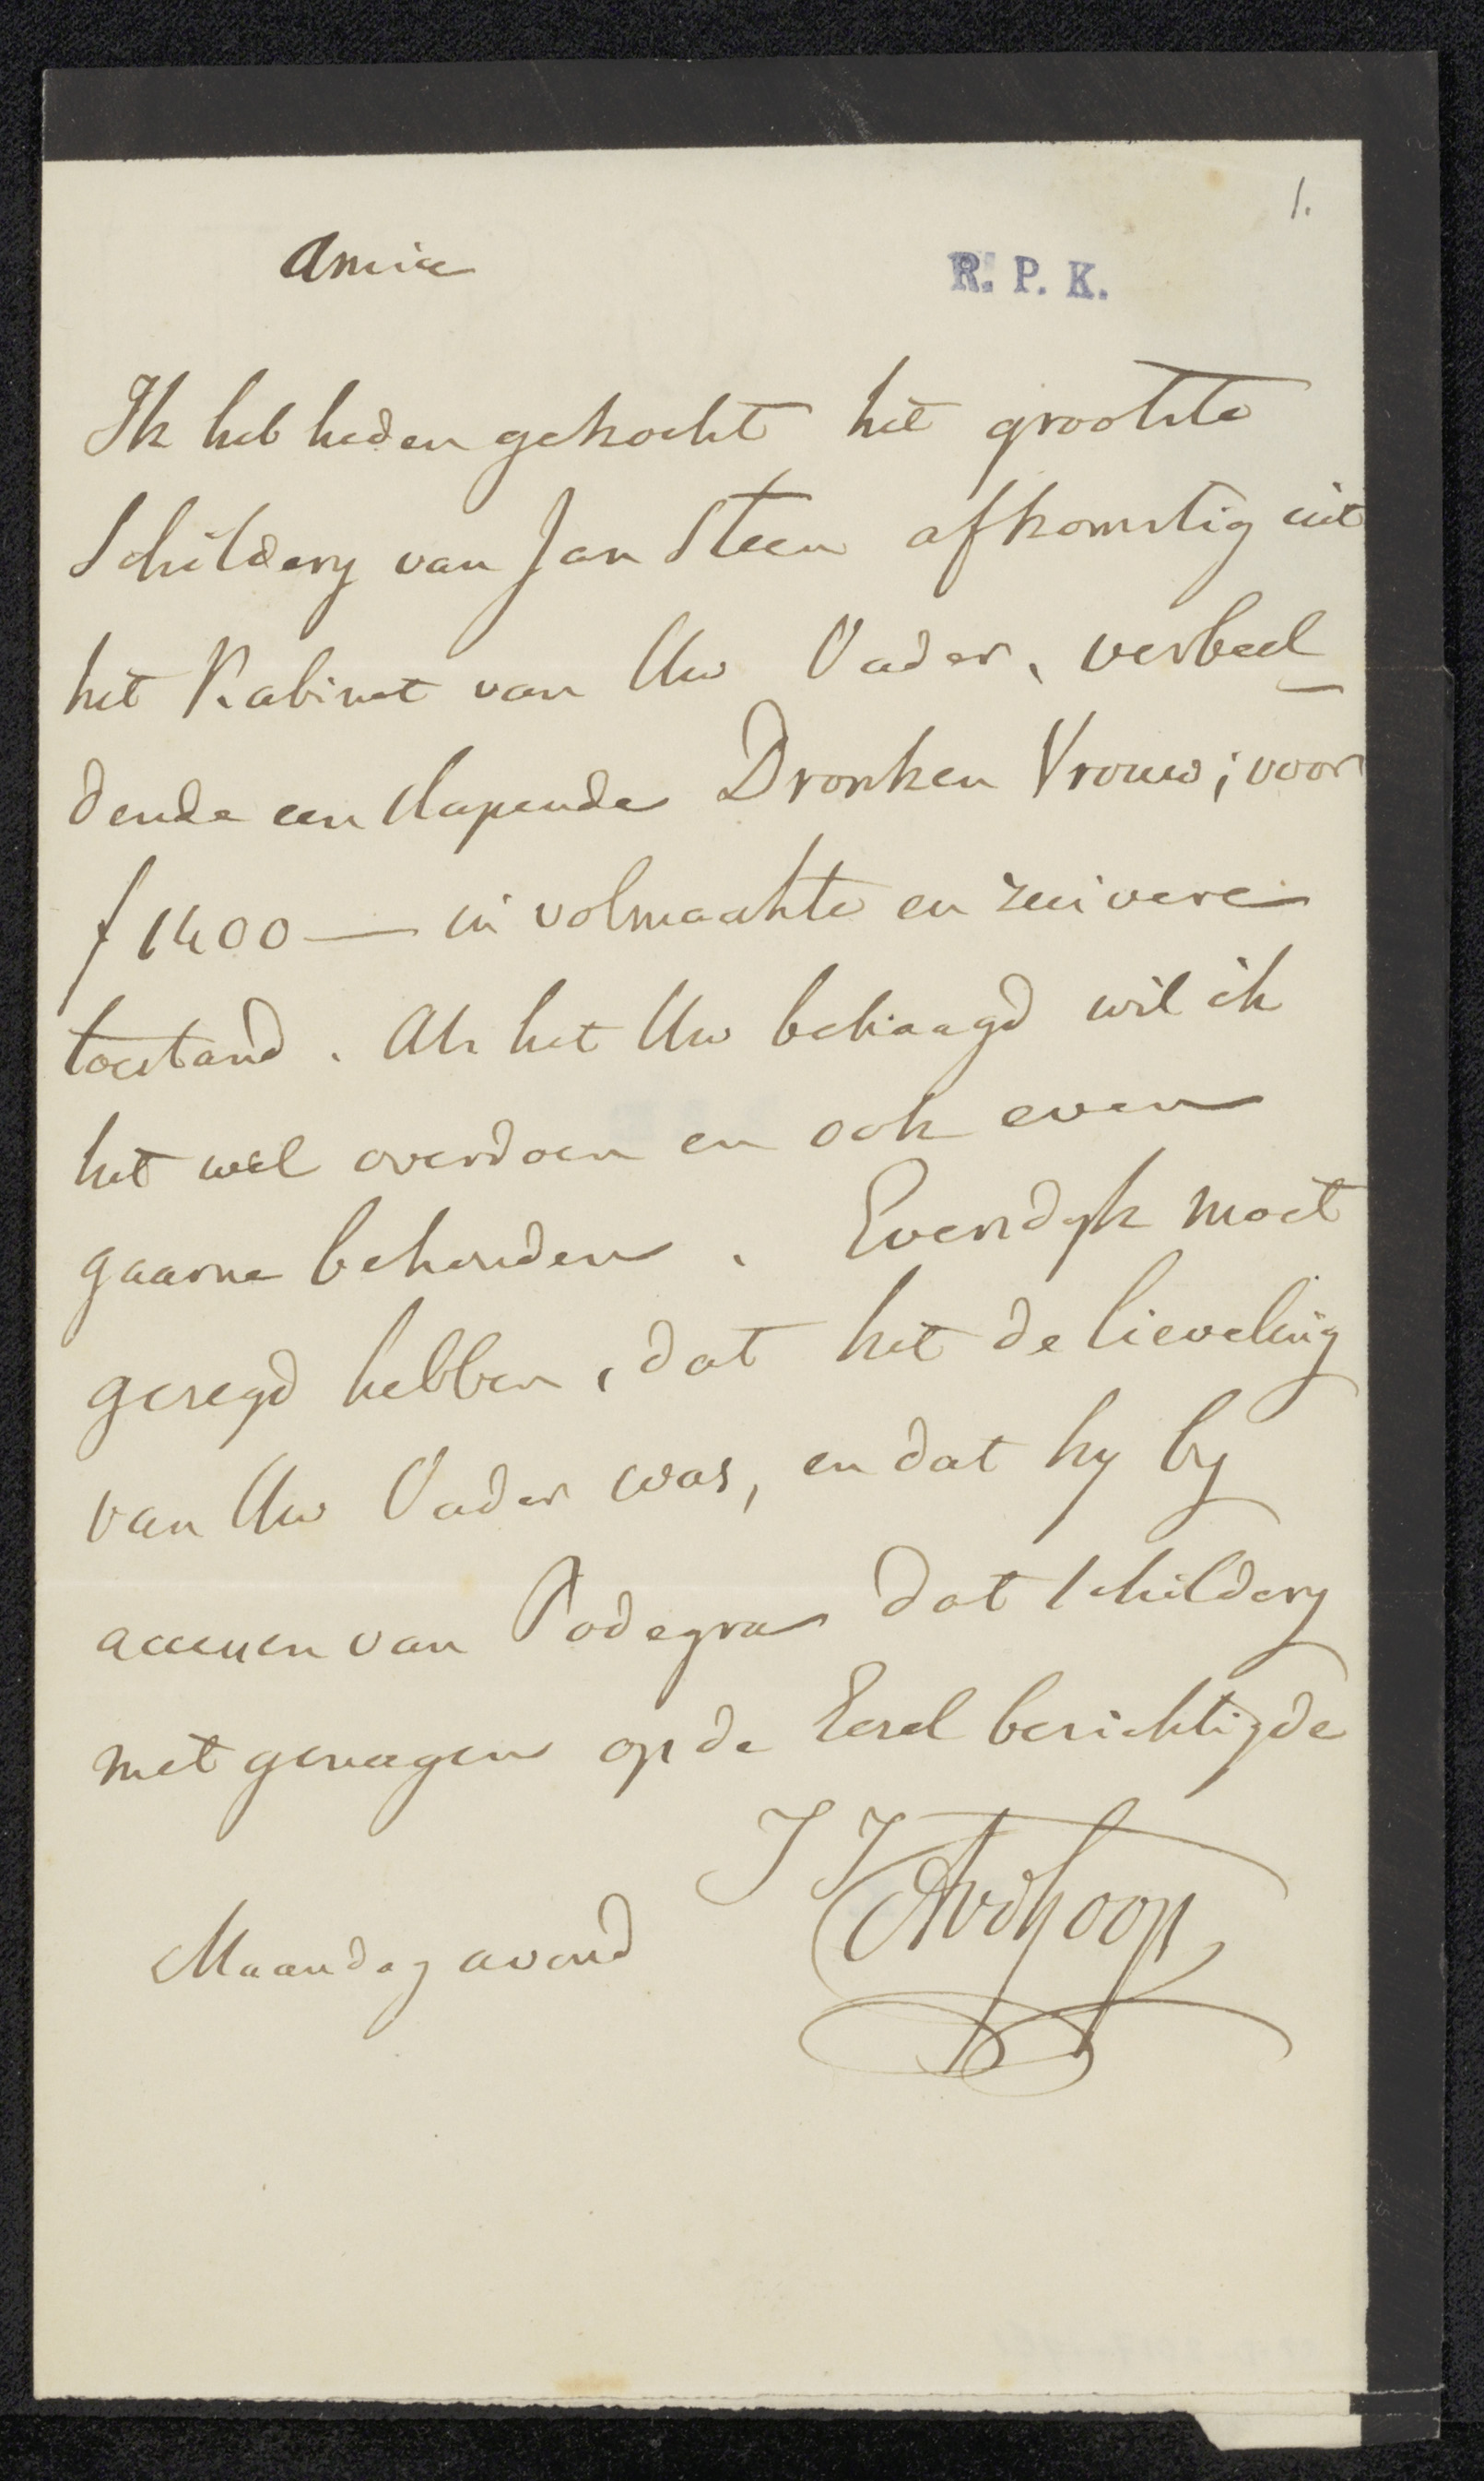 1.
Amice
R. P. K.
Ik heb heden gekocht het grootste
Schildery van Jan Steen afkomstig uit
het Kabinet van Uw Vader, verbeel
dende een slapende Dronken Vrouw; voor
f 1400 — in volmaakte en zuivere
toestand. Als het Uw behaagd wil ik
het wel overdoen en ook even
gaarne behouden. Everdyk moet
gezegd hebben, dat het de lieveling
van Uw Vader was, en dat hy by
accessen van Podegra dat schildery
met genoegen op de Ezel bezichtigde
J J
AvdHoop
Maandag avond